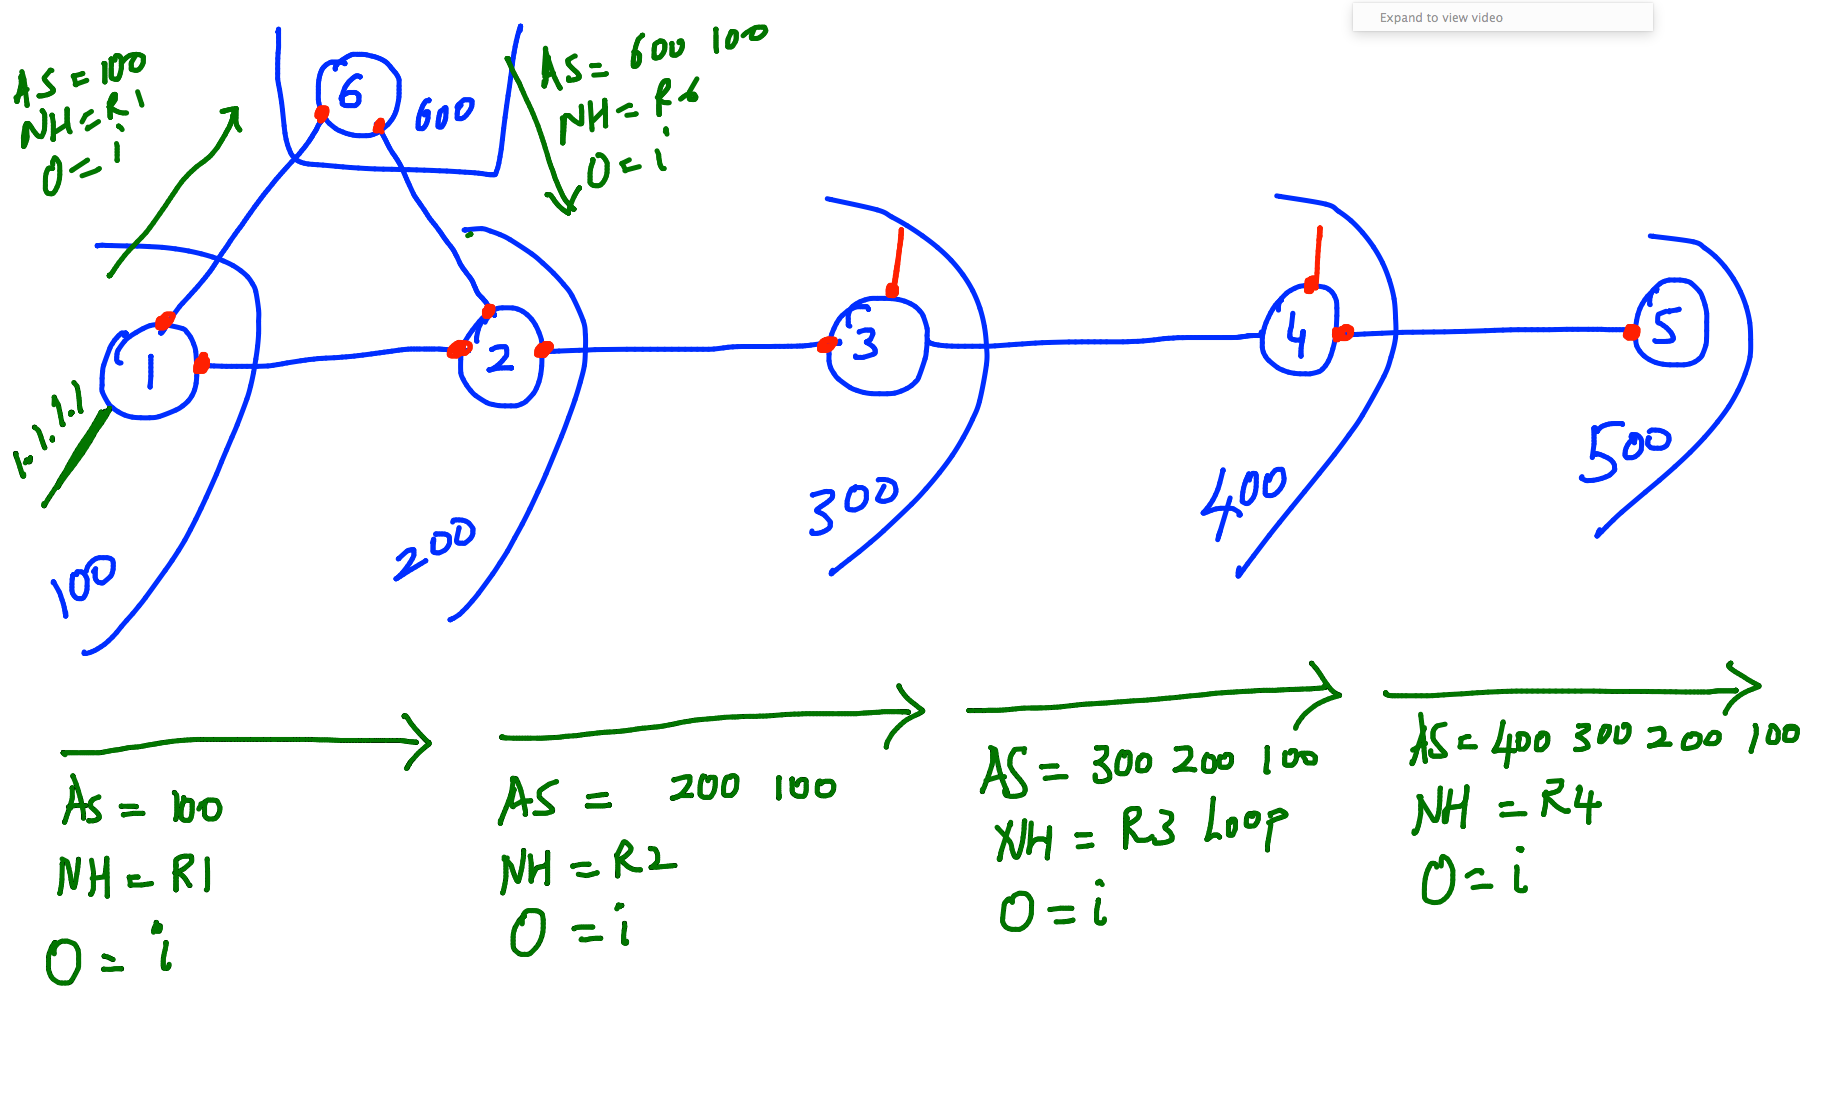 Expand to view video
AS = 100
NH = R1
O = i
6
600
AS = 600 100
NH = R6
O = i
1
2
3
4
5
1.1.1.1
100
200
300
400
500
AS = 100
NH = R1
O = i
AS = 200 100
NH = R2
O = i
AS = 300 200 100
NH = R3 Loop
O = i
AS = 400 300 200 100
NH = R4
O = i